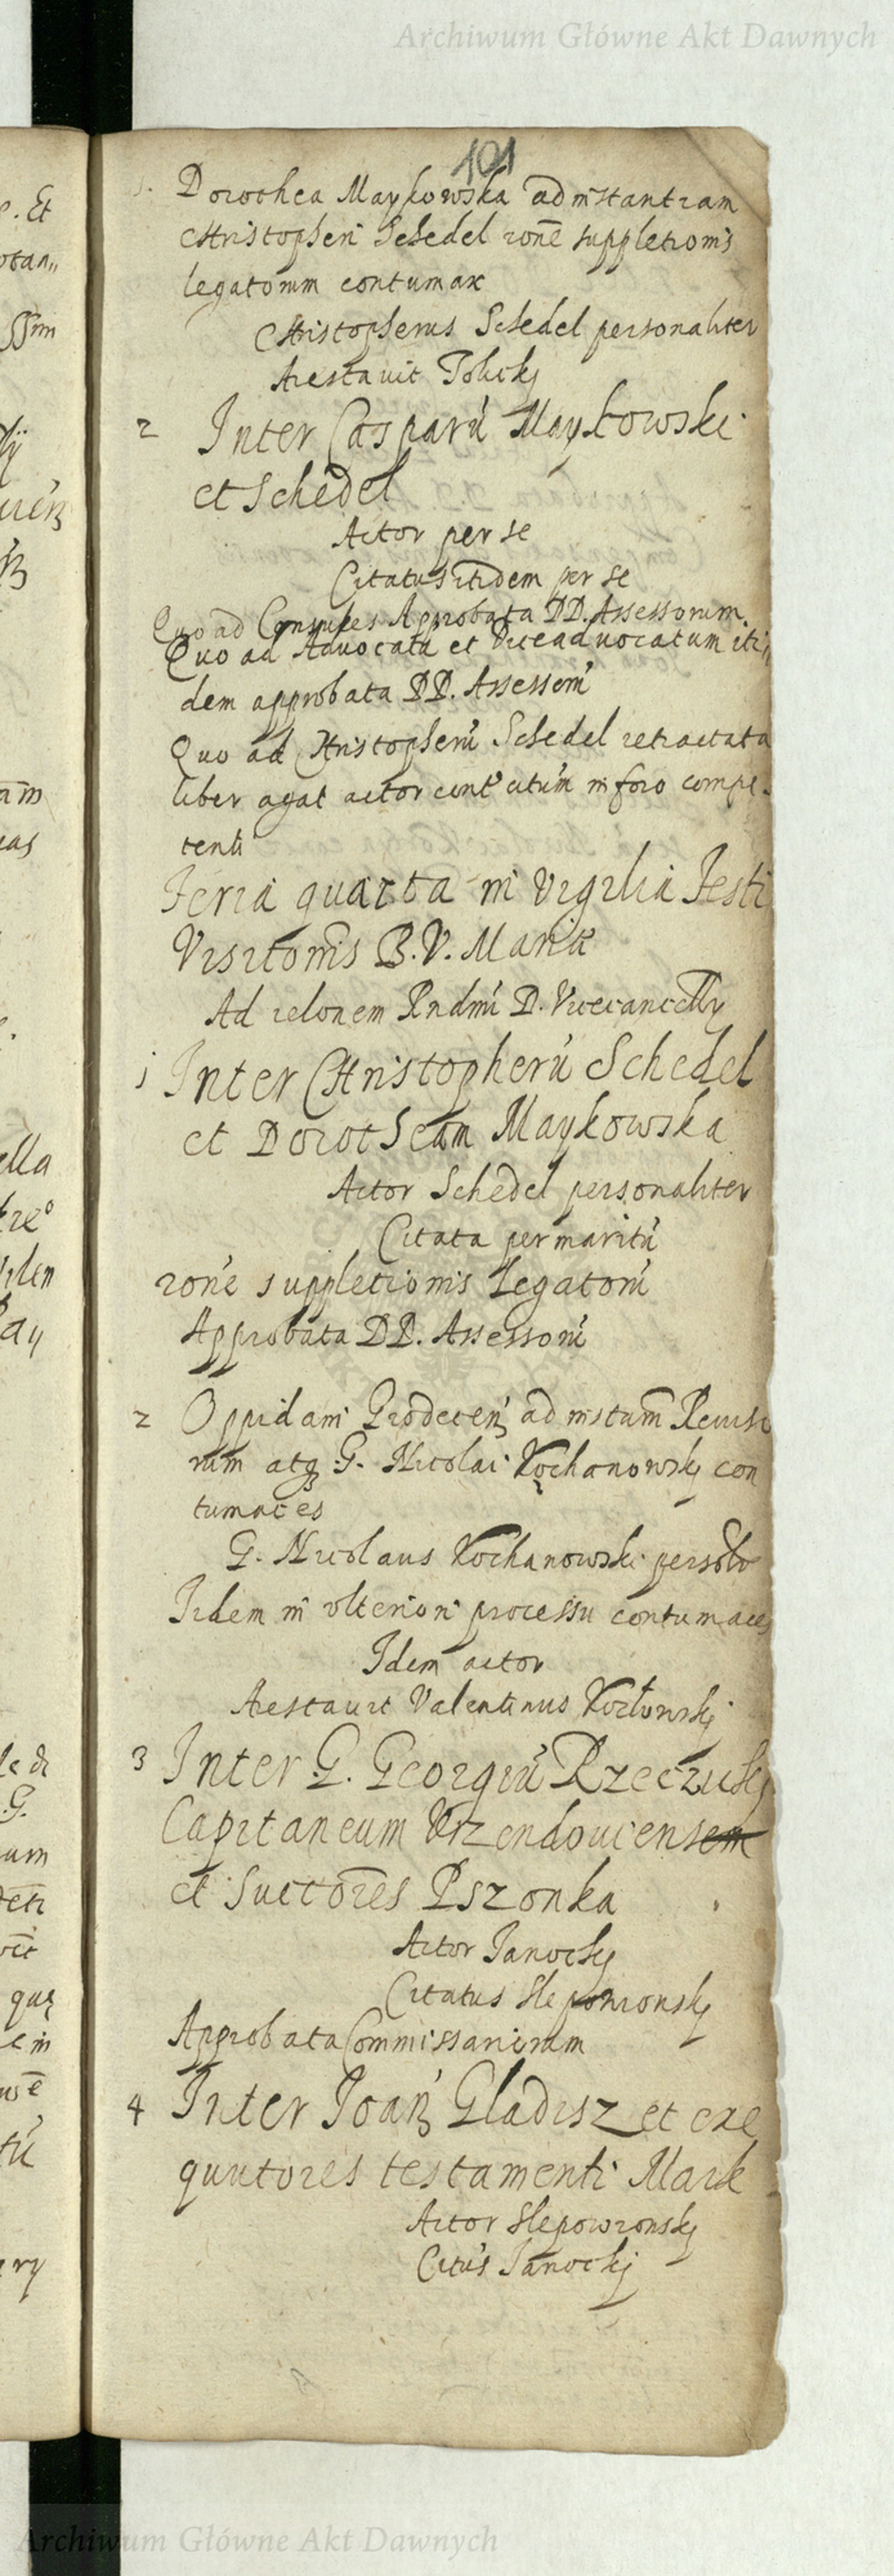 Archiwum Główne Akt Dawnych
101
1. Dorothea Maykowska ad instantiam
Christopheri Schedel rone suppletionis
legatorum contumax
Christopherus Schedel personaliter
Arestavit Tolicky
2 Inter Casparu Maykowski
et Schedel
Actor per se
Citatus itidem per se
Quo ad Consules Approbata DD. Assessorum
Quo ad Advocatu et Viceadvocatum iti„
dem approbata DD. Assessoru
Quo ad Christopheru Schedel retractata
liber agat actor cont citum in foro compe
tenti
Feria quarta in Vigilia Festi
Visitonis B. V. Maria
Ad relonem Rndmi D. Vicecancelly
1 Inter Christopheru Schedel
et Dorotheam Maykowska
Actor Schedel personaliter
Citata per maritu
rone suppletionis Legatoru
Approbata DD. Assessoru
2 Oppidani Grodecen ad instam
rum atq G. Nicolai Kochanowsky con
tumaces
G. Nicolaus Kochanowski personlr
Iidem in ulteriori processu contumaces
Idem actor
Arestavit Valentinus Kozłowsky
3 Inter G. Georgiu Rzeczycky
Capitaneum Vrzendoviensem
et Suctores Pszonka
Actor Janocky
Citatus Slepowronsky
Approbata Commissariorum
4 Inter Joan Gladisz et exe
qutores testamenti Mark
Actor Slepowronsky
Citus Janocky
Archiwum Główne Akt Dawnych